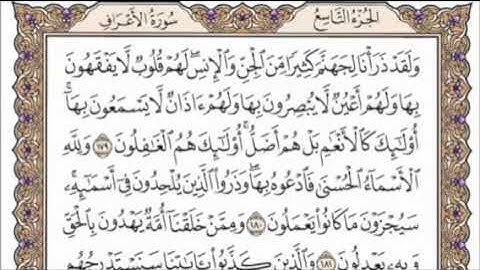 الجزء التاسع سورة الأعراف
وَلَقَدْ ذَرَأْنَا لِجَهَنَّمَ كَثِيرًا مِّنَ ٱلْجِنِّ وَٱلْإِنسِ ۖ لَهُمْ قُلُوبٌ لَّا يَفْقَهُونَ
بِهَا وَلَهُمْ أَعْيُنٌ لَّا يُبْصِرُونَ بِهَا وَلَهُمْ ءَاذَانٌ لَّا يَسْمَعُونَ بِهَآ ۚ
أُو۟لَـٰٓئِكَ كَٱلْأَنْعَـٰمِ بَلْ هُمْ أَضَلُّ ۚ أُو۟لَـٰٓئِكَ هُمُ ٱلْغَـٰفِلُونَ ١٧٩ وَلِلَّهِ
ٱلْأَسْمَآءُ ٱلْحُسْنَىٰ فَٱدْعُوهُ بِهَا ۖ وَذَرُوا۟ ٱلَّذِينَ يُلْحِدُونَ فِىٓ أَسْمَـٰٓئِهِۦ ۚ
سَيُجْزَوْنَ مَا كَانُوا۟ يَعْمَلُونَ ١٨٠ وَمِمَّنْ خَلَقْنَآ أُمَّةٌ يَهْدُونَ بِٱلْحَقِّ
وَبِهِۦ يَعْدِلُونَ ١٨١ وَٱلَّذِينَ كَذَّبُوا۟ بِـَٔايَـٰتِنَا سَنَسْتَدْرِجُهُم